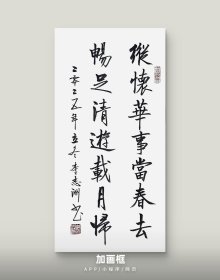 縱懷華事當春去
暢足清遊載月帰
二零二五年立冬李志洲书
加画框
APP/小程序/